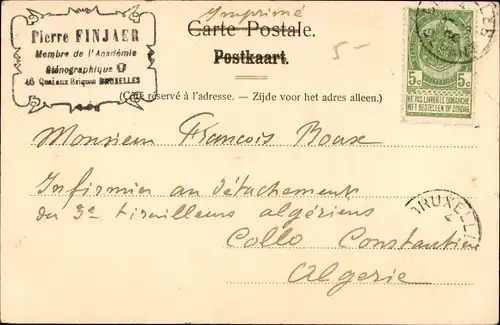 Pierre FINJAER
Membre de l'Académie
Sténographique
46 Quai aux Briques BRUXELLES
Imprimé
Carte Postale.
Postkaart.
5-
(Côté réservé à l'adresse. — Zijde voor het adres alleen.)
5c 5c
NE PAS LIVRER LE DIMANCHE
NIET BESTELLEN OP ZONDAG
Monsieur François Bouxe
Infirmier au détachement
du 3e tirailleurs algériens
BRUXELL
Collo Constantine
Algerie